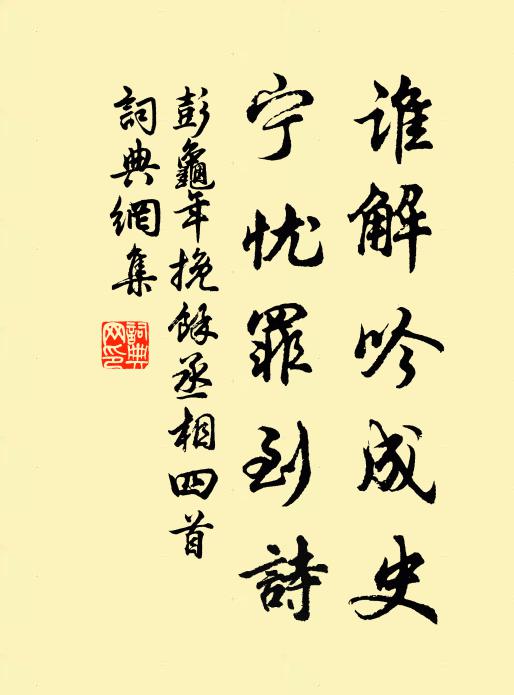 谁解吟成史
宁忧罪到詩
彭龜年挽餘丞相四首
詞典網集
詞典网印